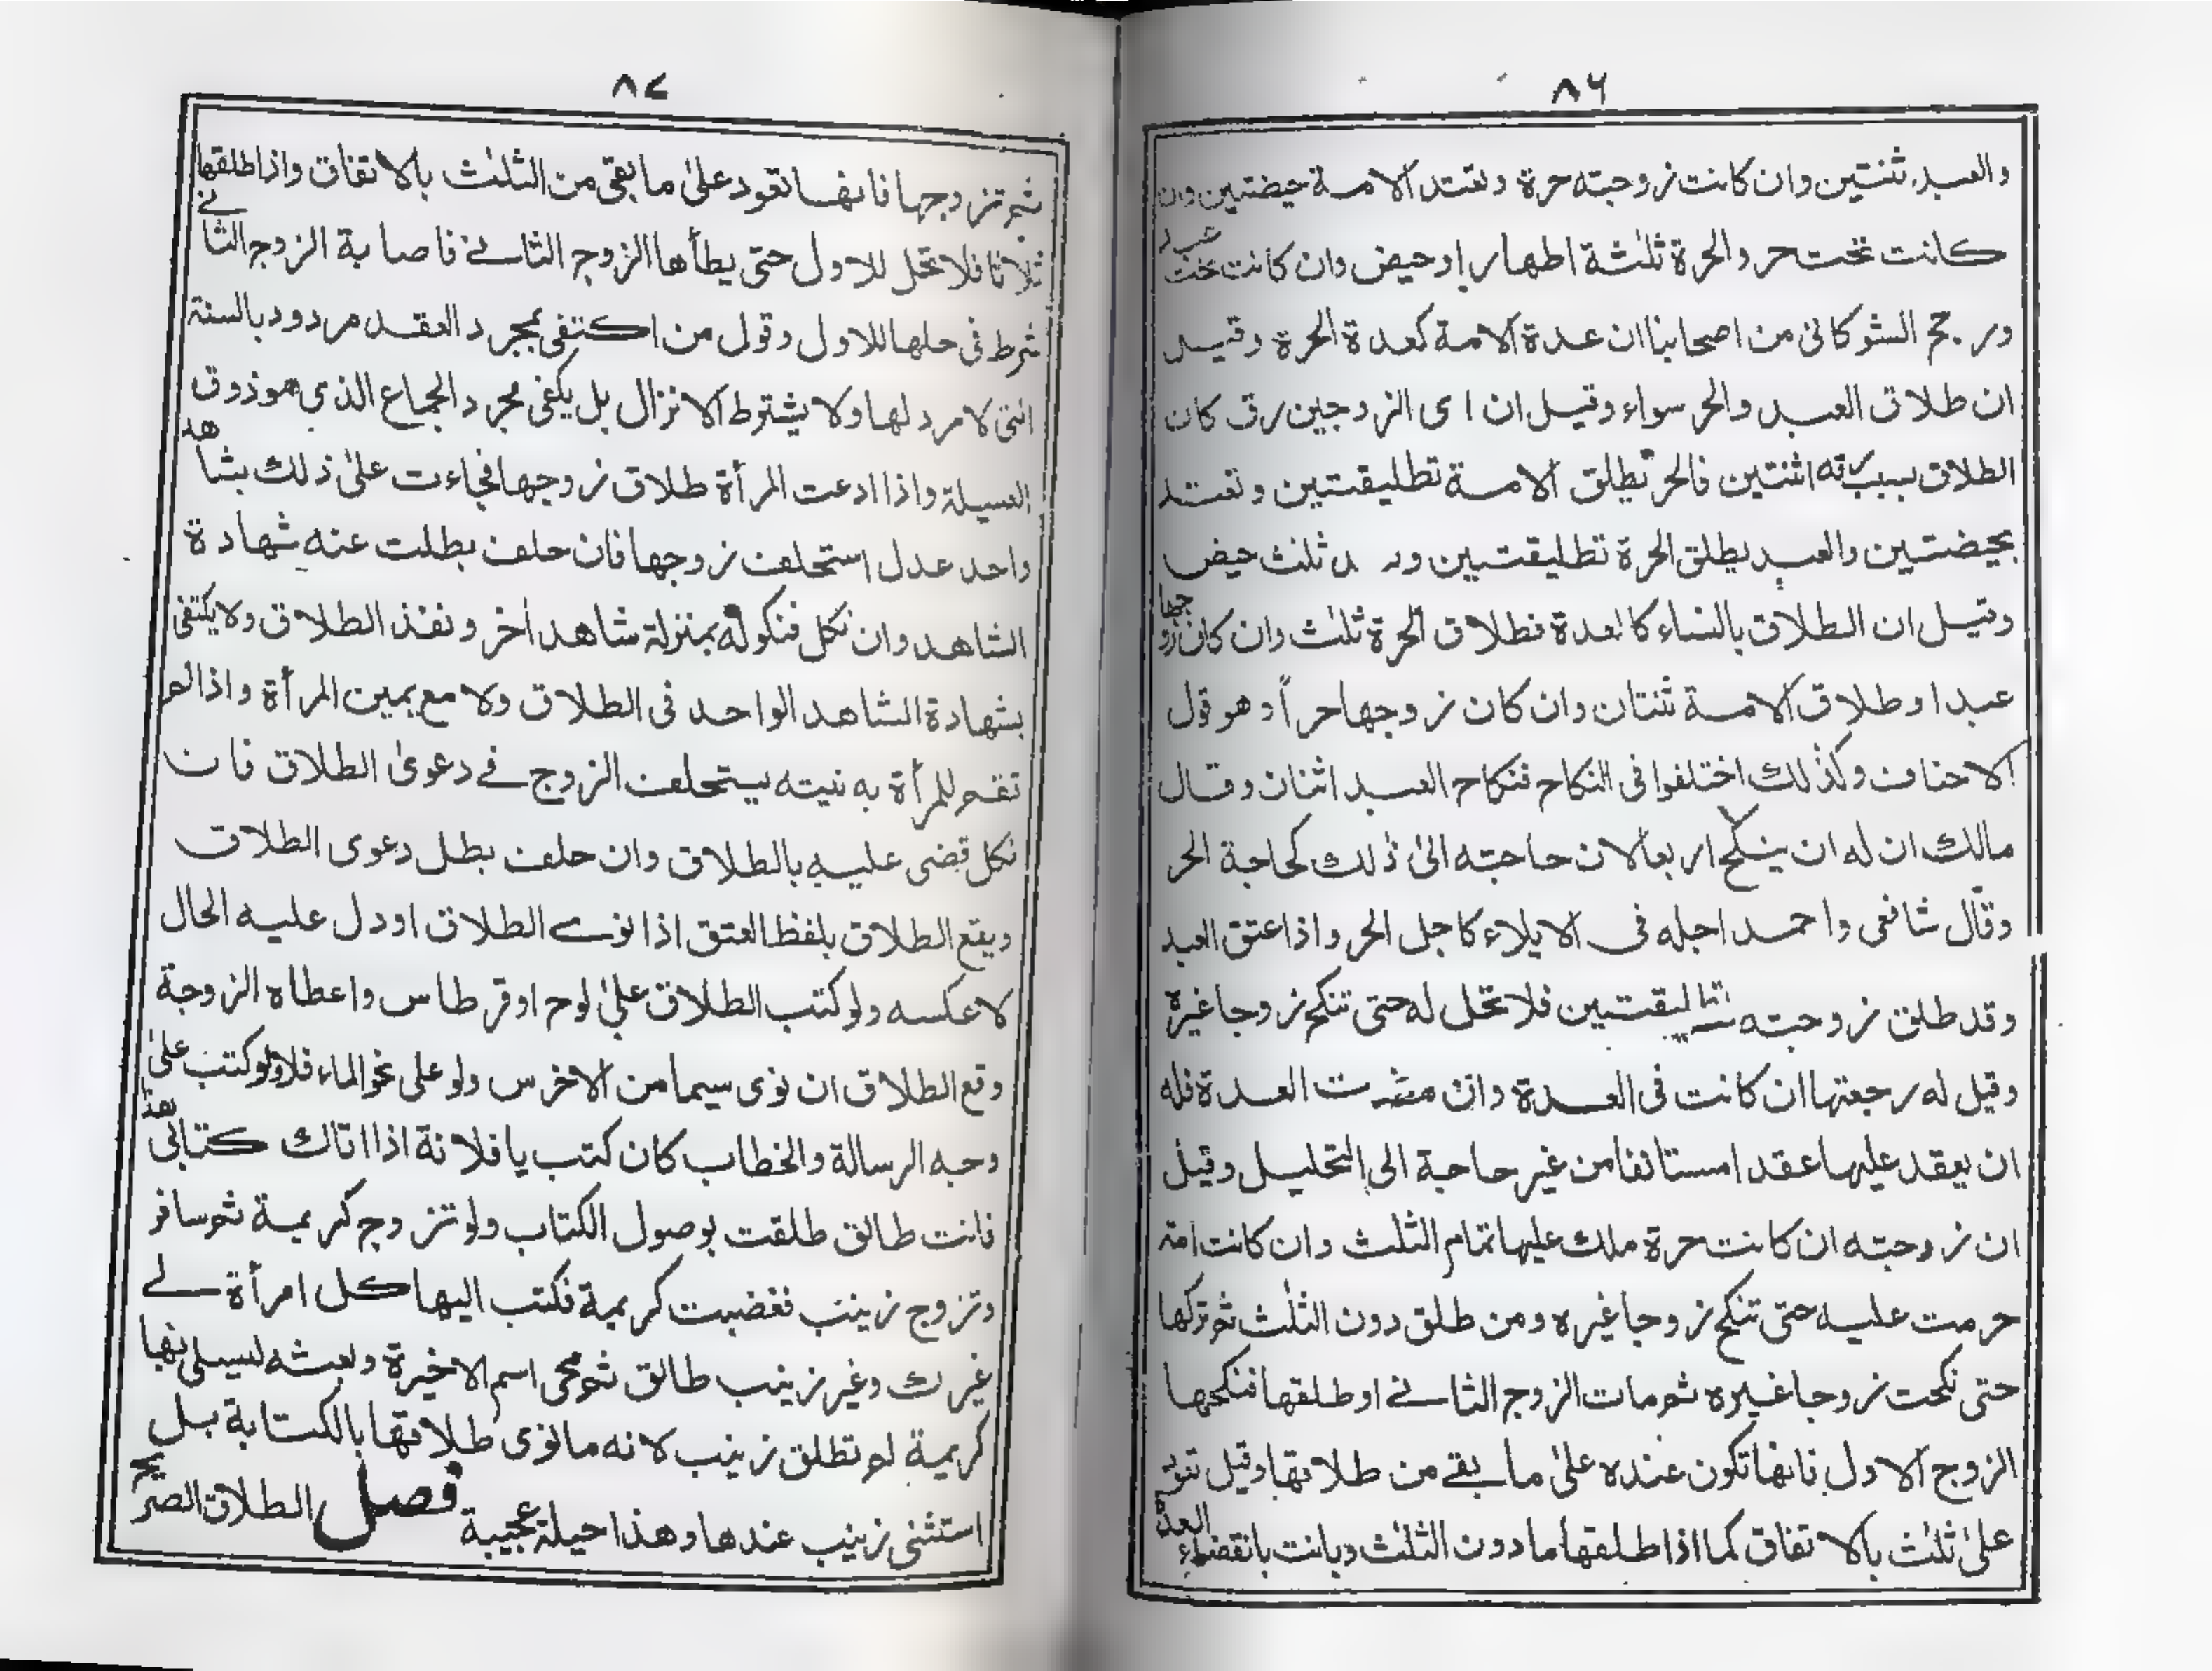 ٨٦
والعبد ثنتين وان كانت زوجته حرة وتعتد الامة حيضتين وان
كانت تحت حر والحرة ثلثة اطهار او حيض وان كانت تحت عبد
ورجح الشوكانى من اصحابنا ان عدة الامة كعدة الحرة وقيل
ان طلاق العبد والحر سواء وقيل ان اى الزوجين رق كان
الطلاق بسبب رقه اثنتين فالحر يطلق الامة تطليقتين وتعتد
بحيضتين والعبد يطلق الحرة تطليقتين ثلث حيض
وقيل ان الطلاق بالنساء كالعدة فطلاق الحرة ثلث وان كان زوجها
عبدا وطلاق الامة ثنتان وان كان زوجها حراً وهو قول
الاحناف وكذلك اختلفوا فى النكاح فنكاح العبد اثنان وقال
مالك ان له ان ينكح اربعا لان حاجته الى ذلك كحاجة الحر
وقال شافعى واحمد اجله فى الايلاء كاجل الحر واذا عتق العبد
وقد طلق زوجته تطليقتين فلا تحل له حتى تنكح زوجا غيره
وقيل له رجعتها ان كانت فى العدة وان مضت العدة فله
ان يعقد عليها عقدا مستانفا من غير حاجة الى التحليل وقيل
ان زوجته ان كانت حرة ملك عليها تمام الثلث وان كانت امة
حرمت عليه حتى تنكح زوجا غيره ومن طلق دون الثلث ثم تركها
حتى نكحت زوجا غيره ثم مات الزوج الثانى او طلقها فنكحها
الزوج الاول فانها تكون عنده على ما بقى من طلاقها وقيل تعود
على ثلث بالاتفاق كما اذا طلقها مادون الثلث وبانت بانقضاء العدة
٨٧
ثم تزوجها فانها تعود على ما بقى من الثلث بالاتفاق واذا طلقها
ثلاثا فلا تحل للاول حتى يطأها الزوج الثانى فاصابة الزوج الثانى
شرط فى حلها للاول وقول من اكتفى بمجرد العقد مردود بالسنة
التى لا مرد لها ولا يشترط الانزال بل يكفى مجرد الجماع الذى هو ذوق
العسيلة واذا ادعت المرأة طلاق زوجها فجاءت على ذلك بشاهد
واحد عدل استحلف زوجها فان حلف بطلت عنه شهادة
الشاهد وان نكل فنكوله بمنزلة شاهد اخر ونفذ الطلاق ولا يكتفى
بشهادة الشاهد الواحد فى الطلاق ولا مع يمين المرأة واذا لم
تقم للمرأة به بينته يستحلف الزوج فى دعوى الطلاق فان
نكل قضى عليه بالطلاق وان حلف بطل دعوى الطلاق
ويقع الطلاق بلفظ العتق اذا نوى الطلاق او دل عليه الحال
لا عكسه ولو كتب الطلاق على لوح او قرطاس واعطاه الزوجة
وقع الطلاق ان نوى سيما من الاخرس ولو على نحو الماء فلا ولو كتب على
وجه الرسالة والخطاب كان كتب يا فلانة اذا اتاك كتابى هذا
فانت طالق طلقت بوصول الكتاب ولو تزوج كريمة ثم سافر
وتزوج زينب فغضبت كريمة فكتب اليها كل امرأة لى
غيرك وغير زينب طالق ثم محى اسم الاخيرة وبعثه ليسلى بها
كريمة لم تطلق زينب لانه ما نوى طلاقها بالكتابة بل
استثنى زينب عندها وهذا حيلة عجيبة فصل الطلاق الصريح